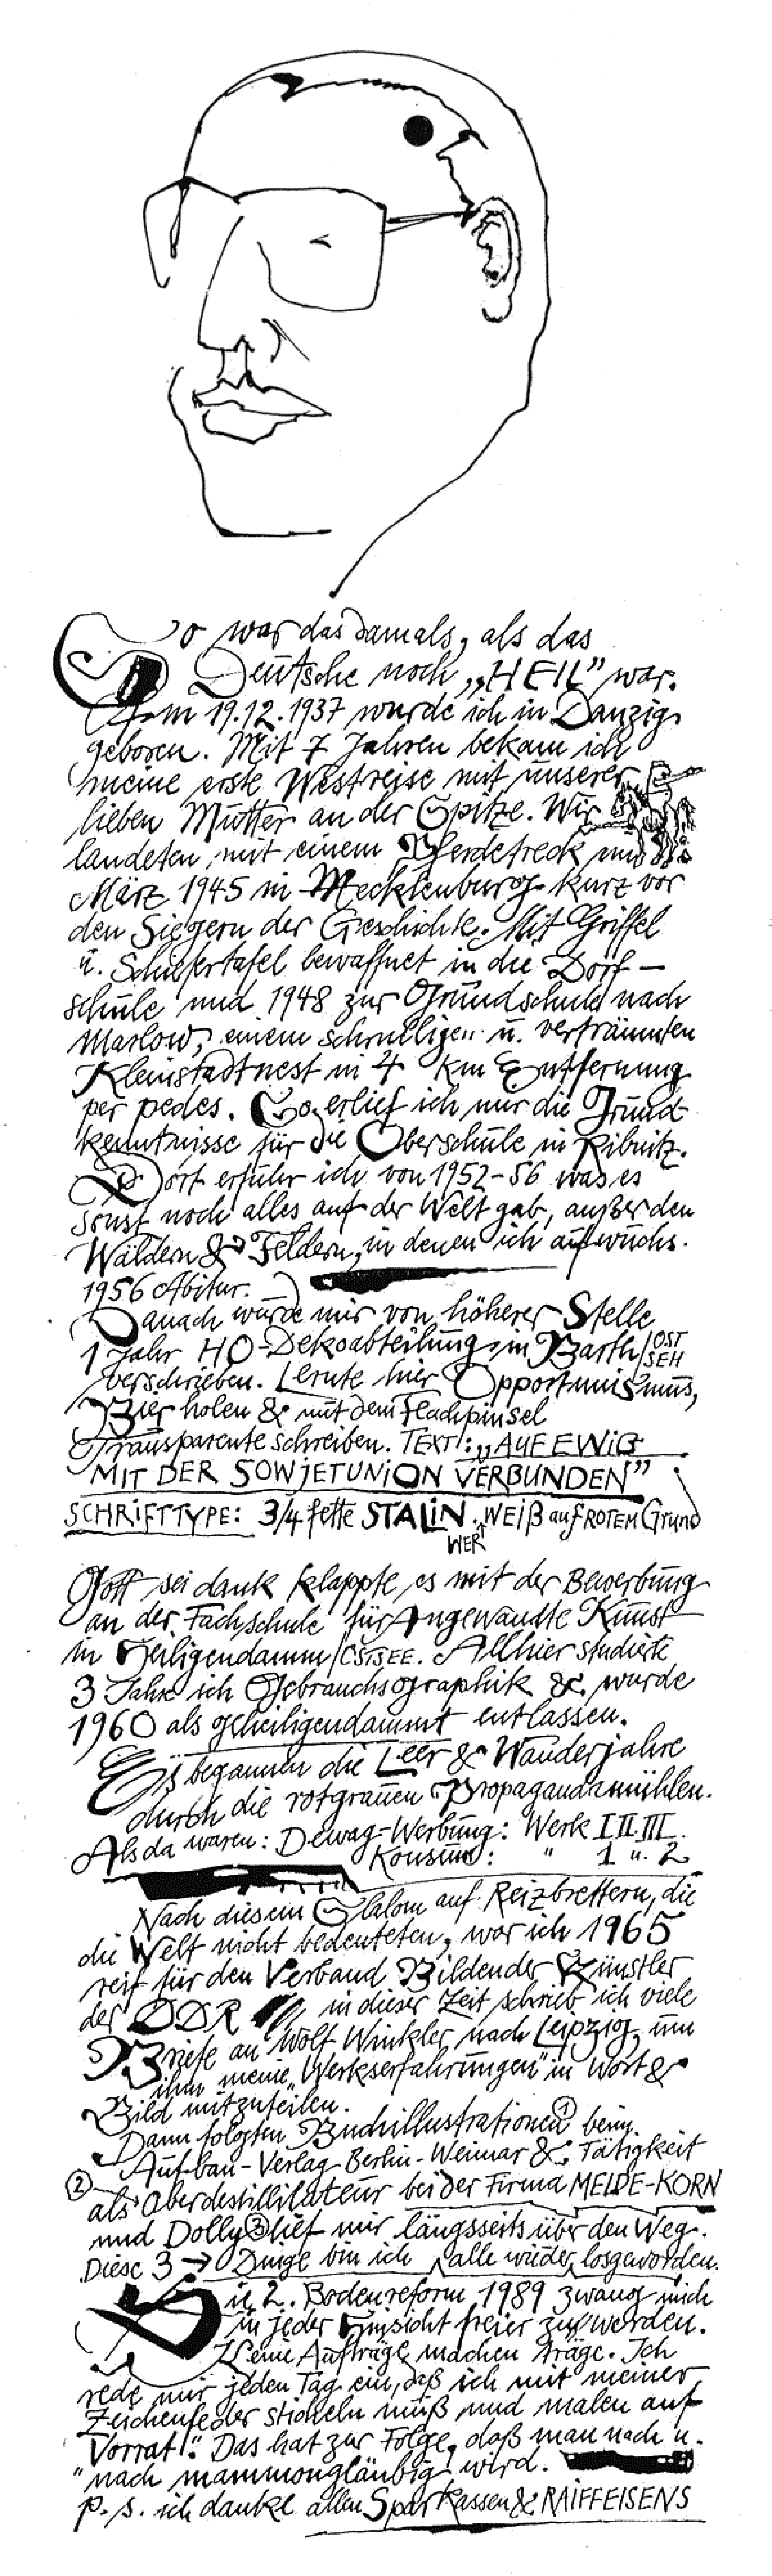 So war das damals, als das
Deutsche noch „HEIL" war.
Am 19.12.1937 wurde ich in Danzig
geboren. Mit 7 Jahren bekam ich
meine erste Westreise mit unserer
lieben Mutter an der Spitze. Wir
landeten mit einem Pferdetreck im
März 1945 in Mecklenburg kurz vor
den Siegern der Geschichte. Mit Griffel
u. Schiefertafel bewaffnet in die Dorf-
schule und 1948 zur Grundschule nach
Marlow, einem schrulligen u. verträumten
Kleinstadtnest in 4 km Entfernung
per pedes. So erlief ich mir die Grund
kenntnisse für die Oberschule in Ribnitz.
Dort erfuhr ich von 1952-56 was es
sonst noch alles auf der Welt gab, außer den
Wäldern & Feldern, in denen ich aufwuchs.
1956 Abitur.
Danach wurde mir von höherer Stelle
1 Jahr HO-Dekoabteilung in Barth/OST
SEH
verschrieben. Lernte hier Opportunismus,
Bier holen & mit dem Flachpinsel
Transparente schreiben. TEXT: „AUF EWIG
MIT DER SOWJETUNION VERBUNDEN"
SCHRIFTTYPE: 3/4 fette STALIN. WEIß auf ROTEM Grund
WER
Gott sei dank klappte es mit der Bewerbung
an der Fachschule für Angewandte Kunst
in Heiligendamm/OSTSEE. Allhier studierte
3 Jahre ich Gebrauchsgraphik & wurde
1960 als geheiligendammt entlassen.
Es begannen die Leer & Wanderjahre
durch die rotgrauen Propagandamühlen.
Als da waren: Dewag-Werbung: Werk I II III
Konsum: " 1 u. 2
Nach diesem Slalom auf Reizbrettern, die
die Welt nicht bedeuteten, war ich 1965
reif für den Verband Bildender Künstler
der DDR in dieser Zeit schrieb ich viele
Briefe an Wolf Winkler nach Leipzig, um
ihm meine „Werkserfahrungen" in Wort &
Bild mitzuteilen.
Dann folgten Buchillustrationen ① beim
Aufbau-Verlag Berlin-Weimar & Tätigkeit
② als Oberdestillateur bei der Firma MELDE-KORN
und Dolly ③ lief mir längsseits über den Weg.
Diese 3 → Dinge bin ich alle wieder losgeworden.
Die 2. Bodenreform 1989 zwang mich
in jeder Hinsicht freier zu werden.
Keine Aufträge machen träge. Ich
rede mir jeden Tag ein, daß ich mit meiner
Zeichenfeder sticheln muß und malen auf
„Vorrat". Das hat zur Folge, daß man nach u.
nach mammongläubig wird.
p.s. ich danke allen Sparkassen & RAIFFEISENS